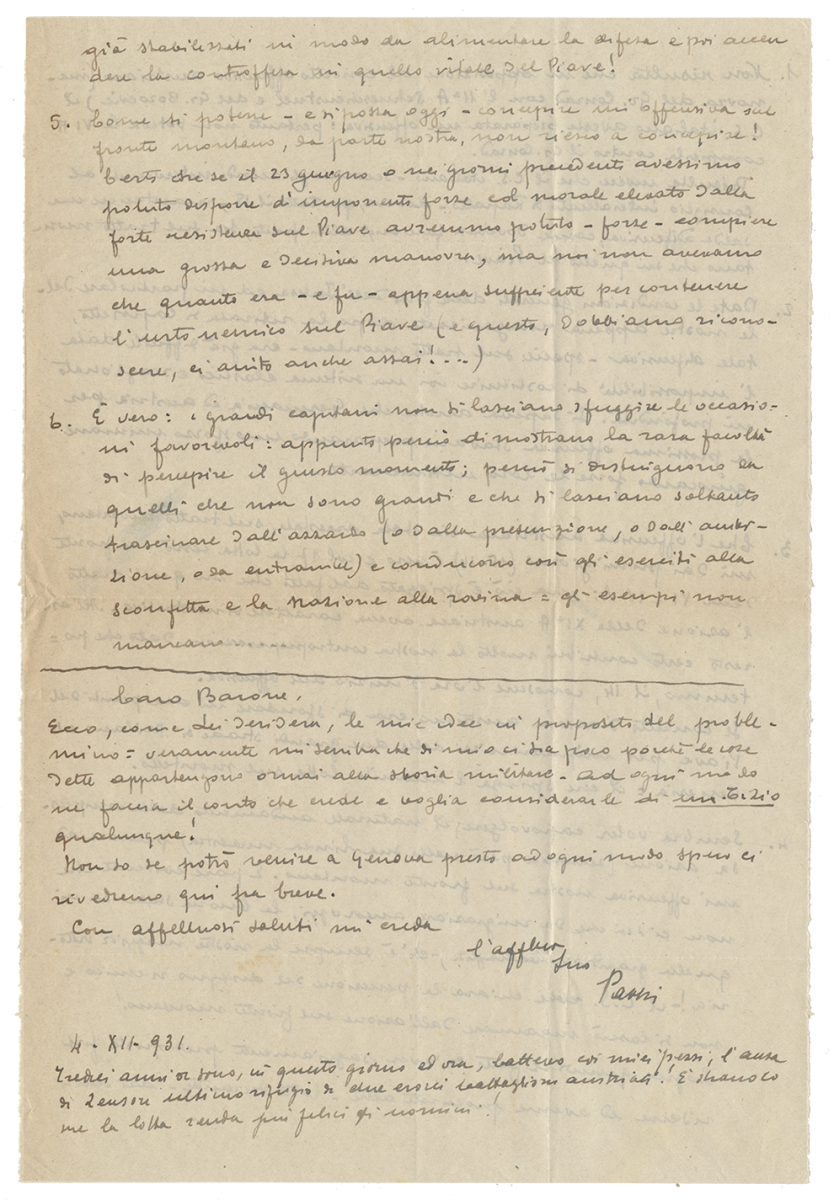 già stabilizzati in modo da alimentare la difesa e poi accen
dere la controffesa in quello vitale del Piave!
5. Come si potesse - e si possa oggi - concepire un'offensiva sul
fronte montano, da parte nostra, non riesco a concepire!
Certo che se il 23 giugno o nei giorni precedenti avessimo
potuto disporre d'imponenti forze col morale elevato dalla
forte resistenza sul Piave avremmo potuto - forse - compiere
una grossa e decisiva manovra, ma noi non avevamo
che quanto era - e fu - appena sufficiente per contenere
l'urto nemico sul Piave (e questo, dobbiamo ricono-
scere, ci aiutò anche assai!...)
6. È vero: i grandi capitani non si lasciano sfuggire le occasio-
ni favorevoli: appunto perciò dimostrano la rara facoltà
di percepire il giusto momento; perciò si distinguono da
quelli che non sono grandi e che si lasciano soltanto
trascinare dall'azzardo (o dalla presunzione, o dall'ambi-
zione, o da entrambe) e conducono così gli eserciti alla
sconfitta e la nazione alla rovina = gli esempi non
mancano.......
Caro Barone,
Ecco, come Lei desidera, le mie idee in proposito del proble-
mino = veramente mi sembra che di mio ci sia poco poichè le cose
dette appartengono ormai alla storia militare - Ad ogni modo
ne faccia il conto che crede e voglia considerarle di un Tizio
qualunque!
Non so se potrò venire a Genova presto ad ogni modo spero ci
rivedremo qui fra breve.
Con affettuosi saluti mi creda
l'aff.mo
Suo
4 - XII - 931.
Tredici anni or sono, in questo giorno ed ora, battevo coi miei pezzi, l'ansa
di Zenson ultimo rifugio di due eroici battaglioni austriaci! È strano co
me la lotta renda più felici gli uomini!